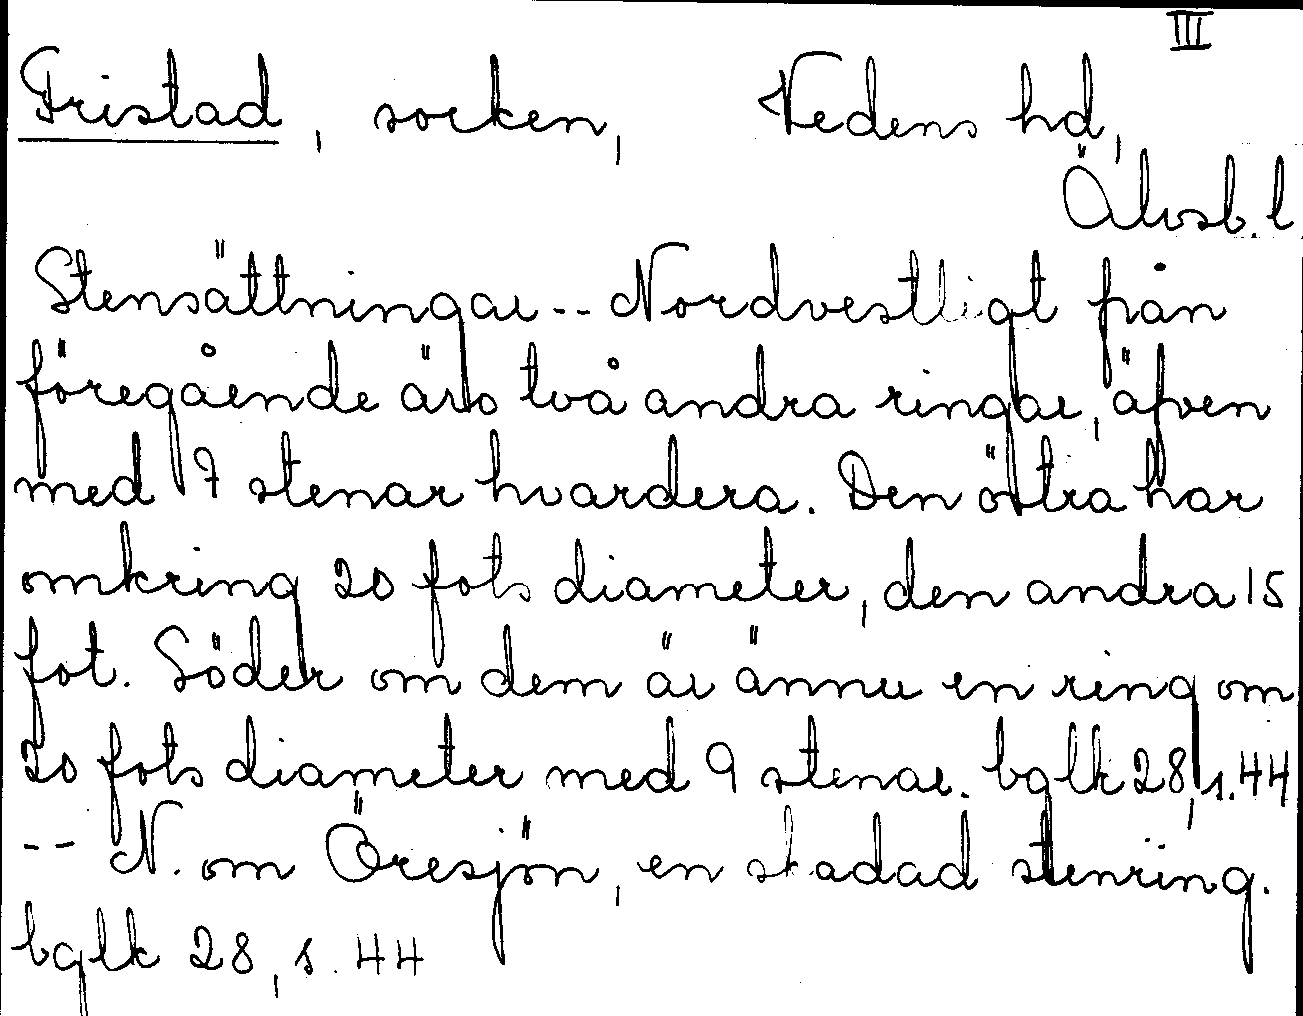 III
Fristad, socken, Vedens hd,
Älvsb. l
Stensättningar -- Nordvestligt från
föregående äro två andra ringar, äfven
med 7 stenar hvardera. Den östra har
omkring 20 fots diameter, den andra 15
fot. Söder om dem är ännu en ring om
20 fots diameter med 9 stenar. bglk 28, s. 44
-- N. om Öresjön, en skadad stenring.
bglk 28, s. 44